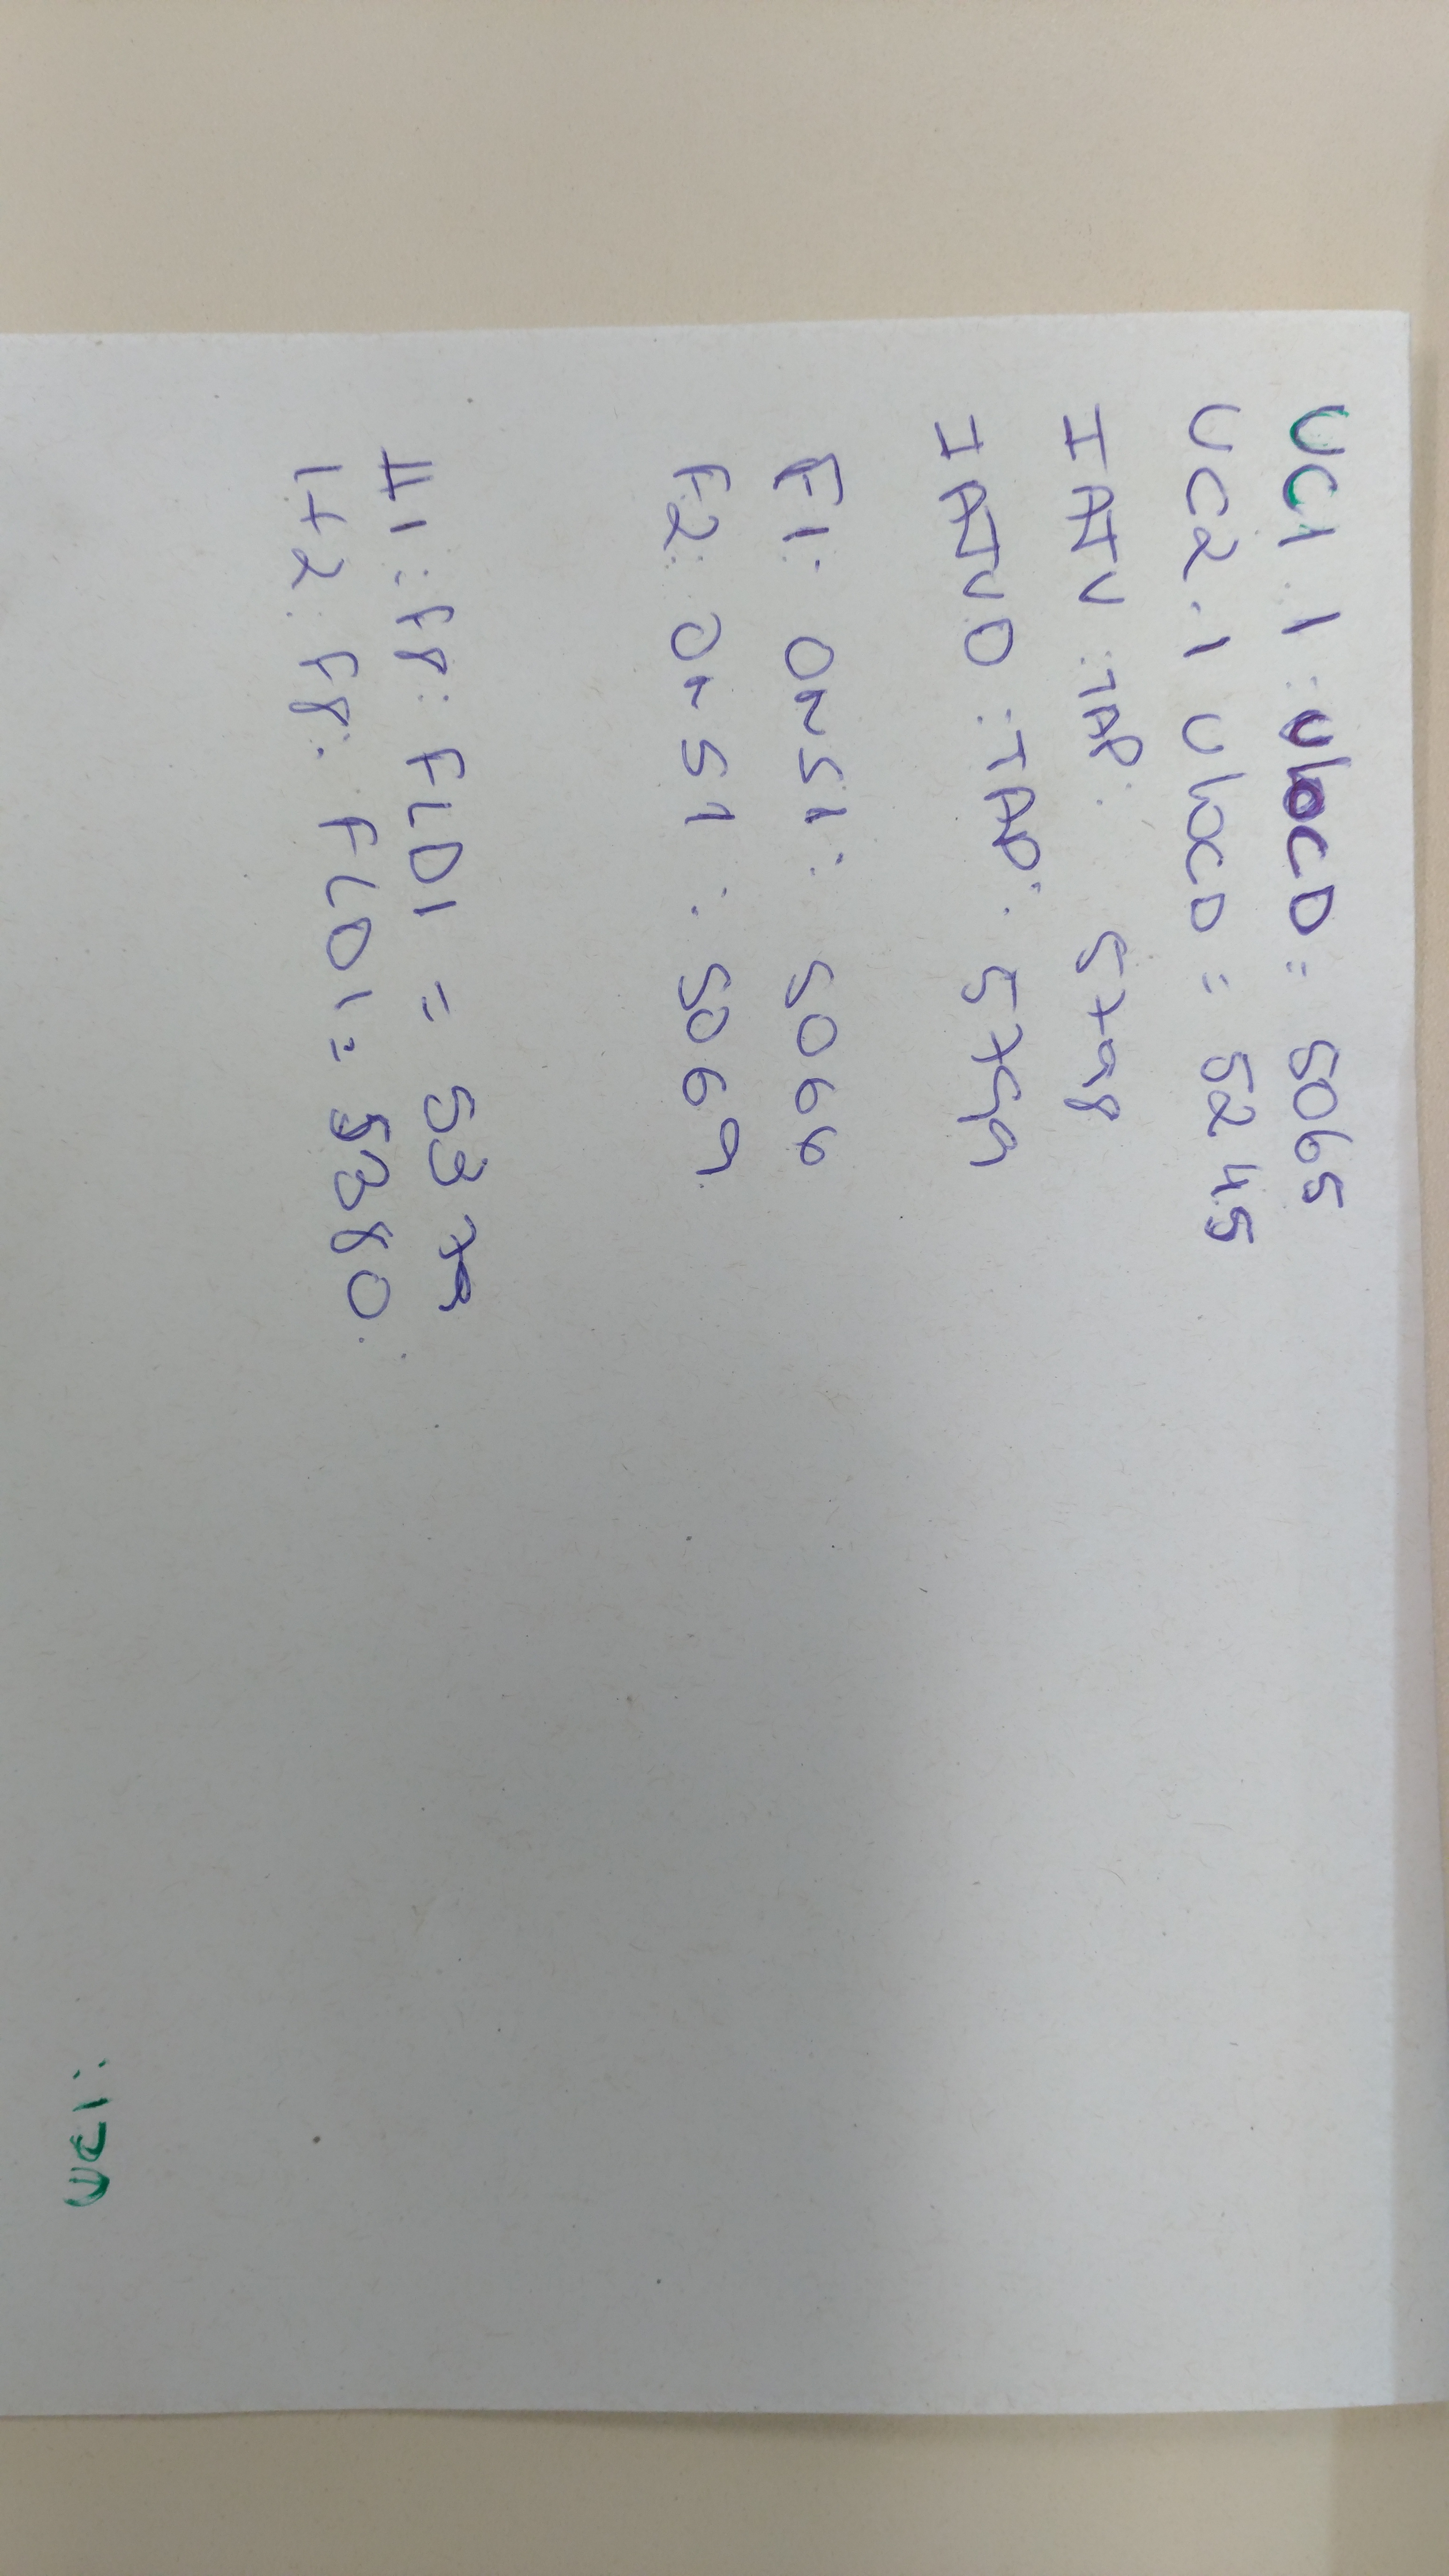 UC1.1: UbcD = 5065
UC2.1 UbcD = 5245
IATV: TAP: 5798
IATVO: TAP: 5759
F1: OnS1: 5066
F2: OnS1: 5069
H1: F8: FL01 = 5379
H2: F8: FL01 = 5380
UC1: